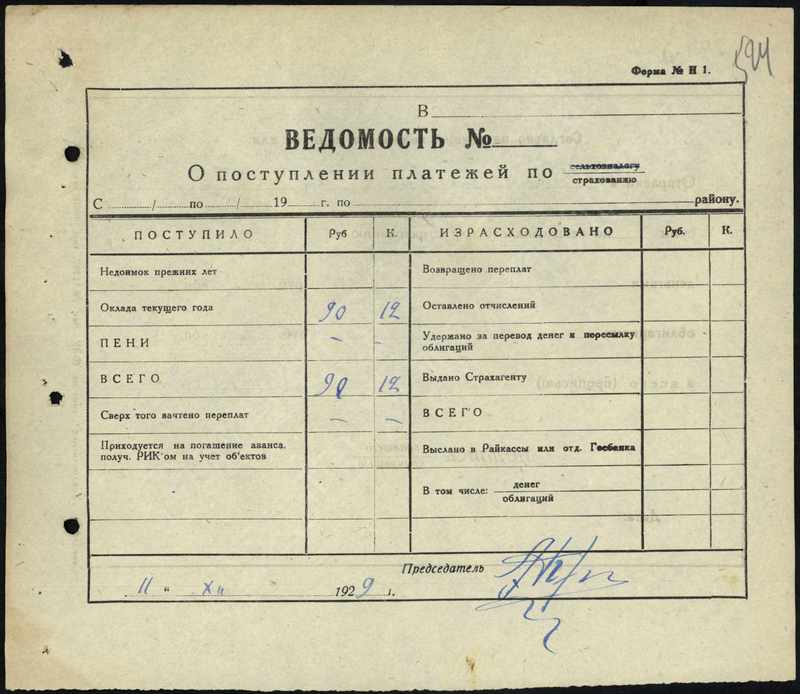 594
Форма № Н 1.
В
ВЕДОМОСТЬ №
О поступлении платежей по сельхозналогу
страхованию
С / по / 19 г. по району.
ПОСТУПИЛО Руб К. ИЗРАСХОДОВАНО Руб. К.
Недоимок прежних лет Возвращено переплат
Оклада текущего года 90 12 Оставлено отчислений
ПЕНИ – – Удержано за перевод денег и пересылку
облигаций
ВСЕГО 90 12 Выдано Страхагенту
Сверх того зачтено переплат – – ВСЕГО
Приходуется на погашение аванса,
получ. РИК'ом на учет об'ектов
Выслано в Райкассы или отд. Госбанка
В том числе: денег
облигаций
Председатель
11 " XII 1929 г.